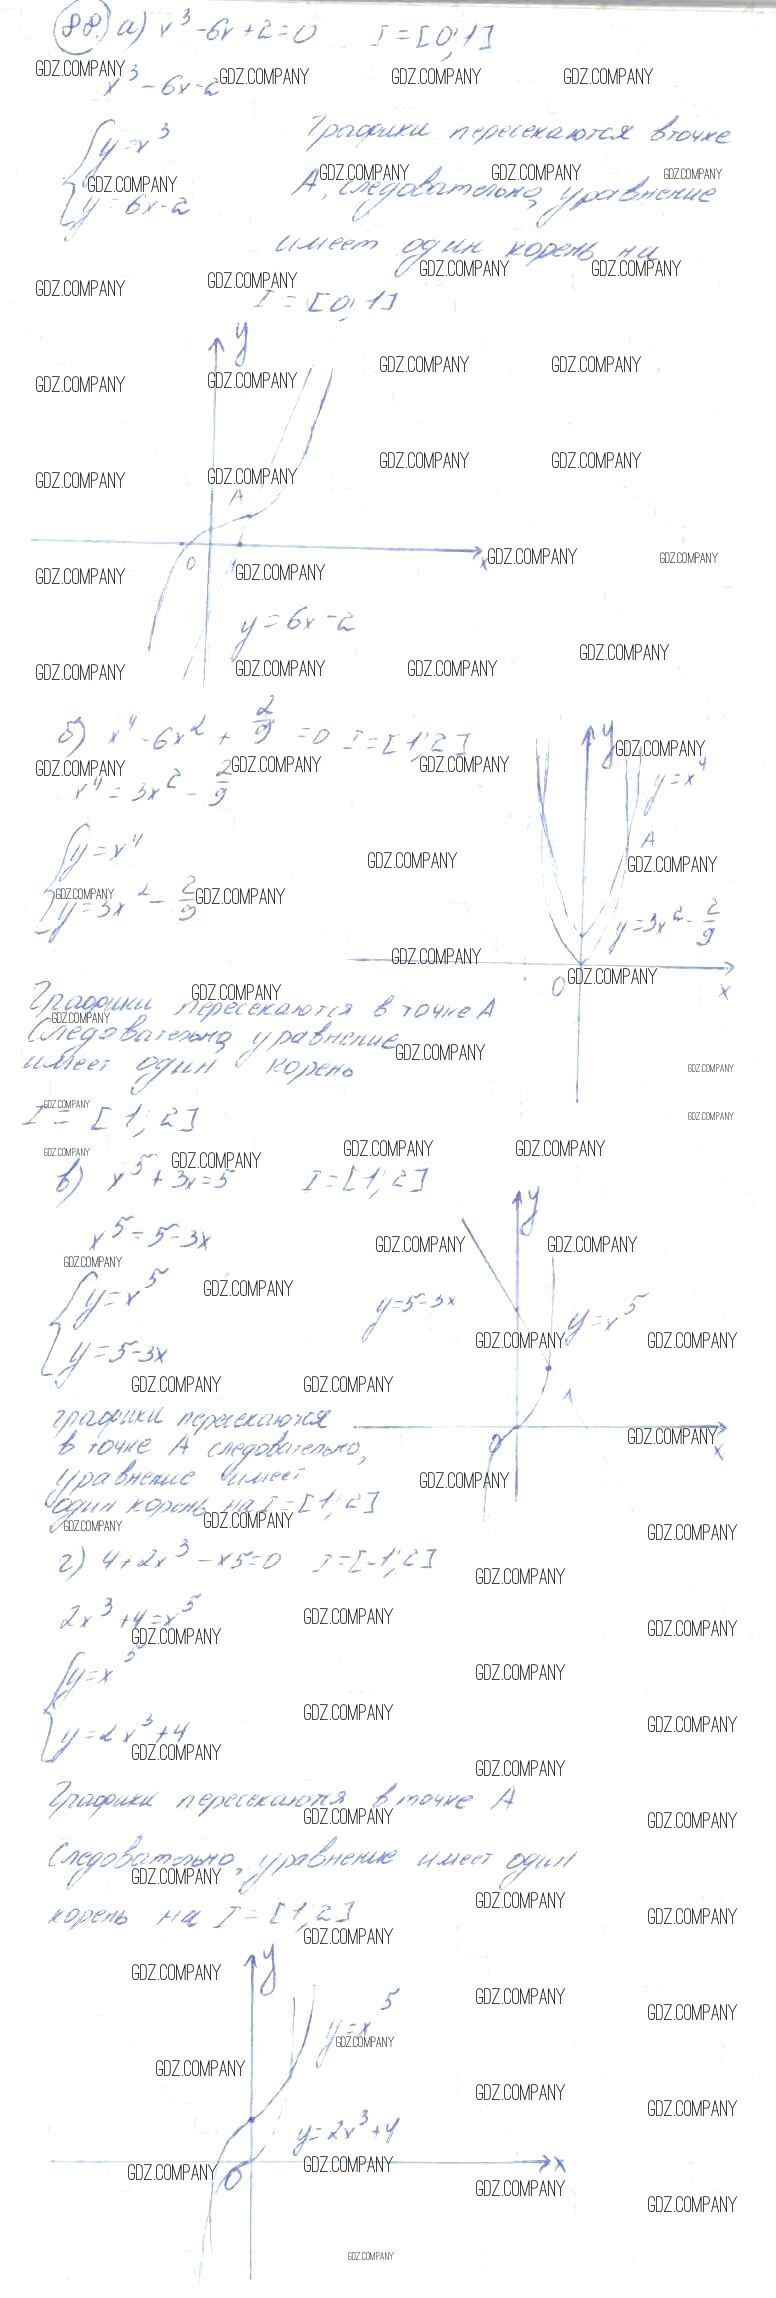 88. а) x³ - 6x + 2 = 0 I = [0; 1]
x³ - 6x - 2
{ y = x³
y = 6x - 2
Графики пересекаются в точке
А, следовательно, уравнение
имеет один корень на
I = [0; 1]
y
A
0
1
x
y = 6x - 2
б) x⁴ - 6x² + 2/9 = 0 I = [1; 2]
x⁴ = 3x² - 2/9
{ y = x⁴
y = 3x² - 2/9
y
y = x⁴
A
y = 3x² - 2/9
0
x
Графики пересекаются в точке А
Следовательно, уравнение
имеет один корень
I = [1; 2]
в) x⁵ + 3x = 5 I = [1; 2]
x⁵ = 5 - 3x
{ y = x⁵
y = 5 - 3x
y
y = 5 - 3x
y = x⁵
A
0
x
графики пересекаются
в точке А следовательно,
уравнение имеет
один корень на I = [1; 2]
г) 4 + 2x³ - x5 = 0 I = [-1; 2]
2x³ + 4 = x⁵
{ y = x⁵
y = 2x³ + 4
Графики пересекаются в точке А
Следовательно, уравнение имеет один
корень на I = [1; 2]
y
y = x⁵
y = 2x³ + 4
0
x
GDZ.COMPANY